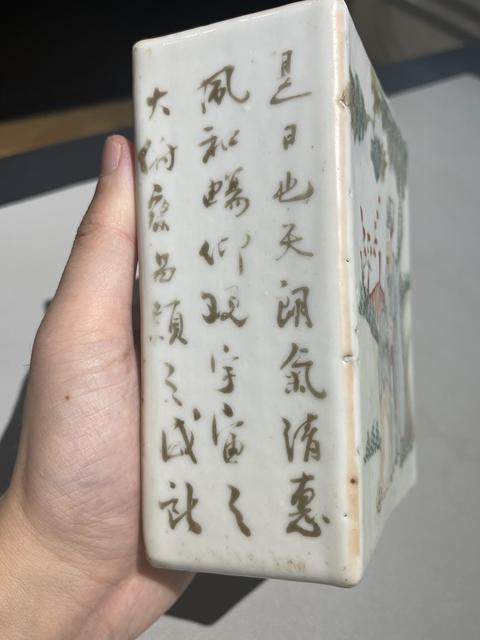 是日也天朗氣清惠
風和暢仰觀宇宙之
大俯察品類之盛